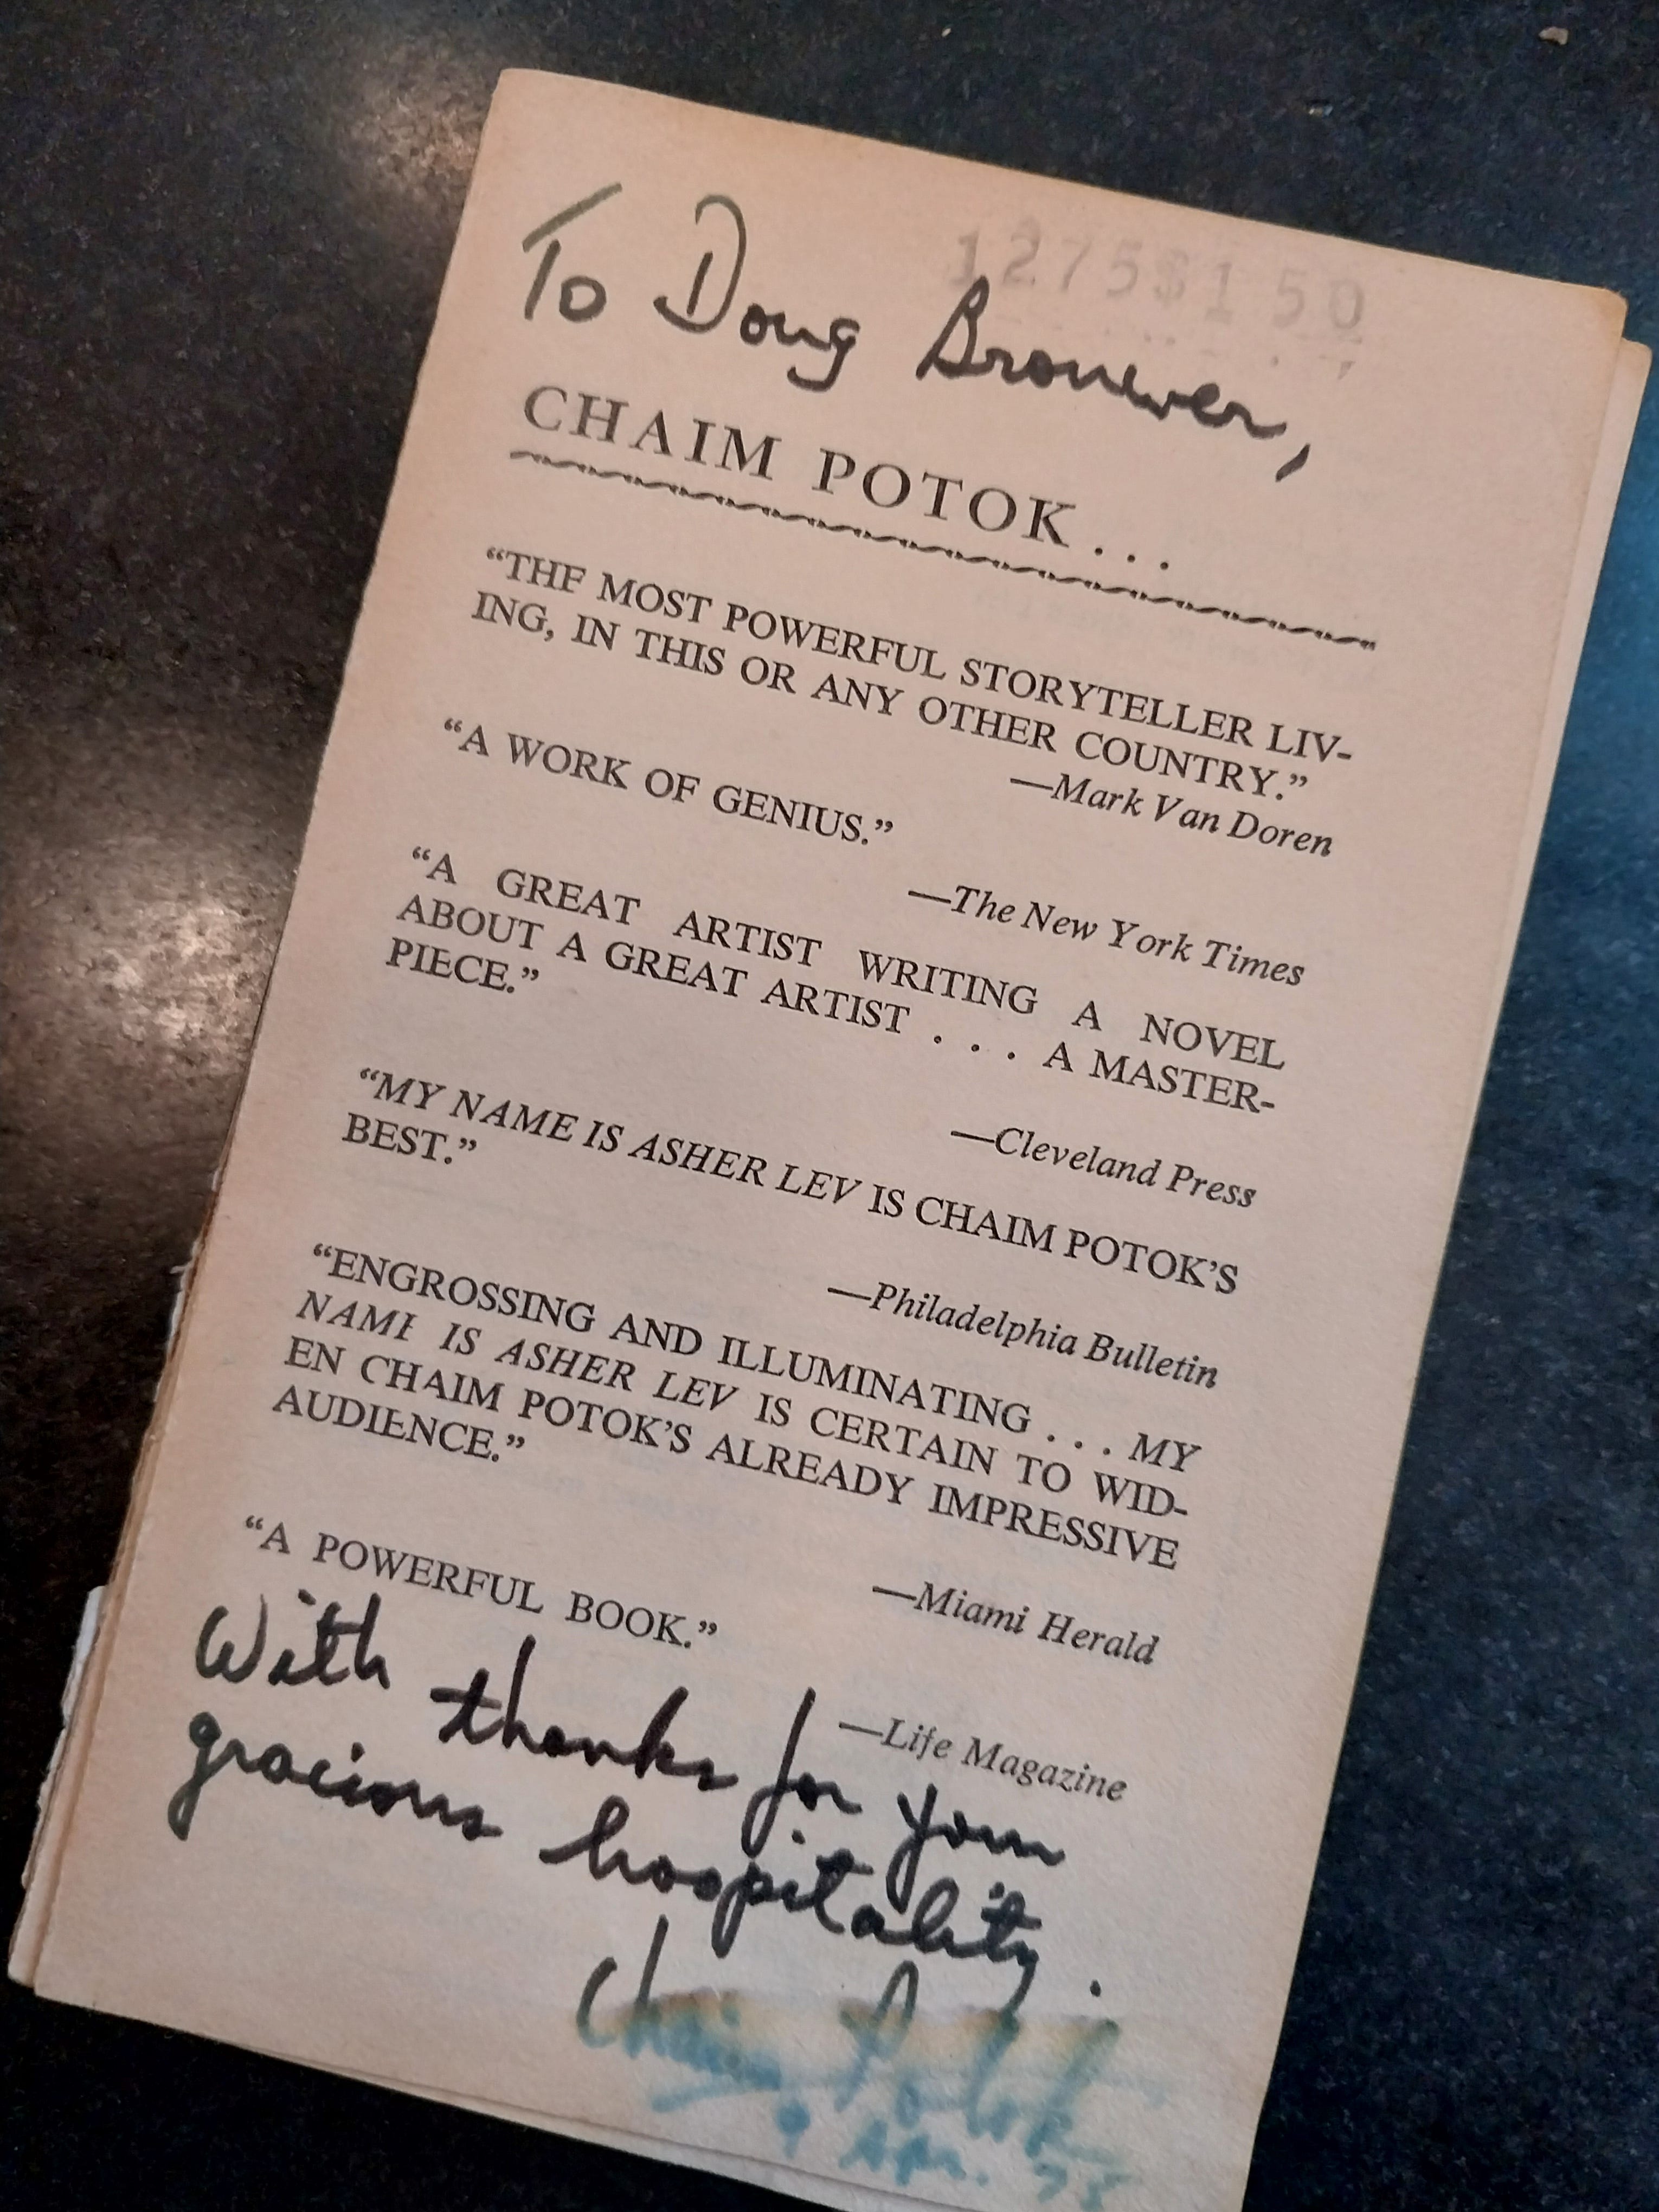 1275$150
To Doug Brouwer,
CHAIM POTOK . . .
“THE MOST POWERFUL STORYTELLER LIV-
ING, IN THIS OR ANY OTHER COUNTRY.”
—Mark Van Doren
“A WORK OF GENIUS.”
—The New York Times
“A GREAT ARTIST WRITING A NOVEL
ABOUT A GREAT ARTIST . . . A MASTER-
PIECE.”
—Cleveland Press
“MY NAME IS ASHER LEV IS CHAIM POTOK’S
BEST.”
—Philadelphia Bulletin
“ENGROSSING AND ILLUMINATING . . . MY
NAME IS ASHER LEV IS CERTAIN TO WID-
EN CHAIM POTOK’S ALREADY IMPRESSIVE
AUDIENCE.”
—Miami Herald
“A POWERFUL BOOK.”
—Life Magazine
With thanks for your
gracious hospitality.
Chaim Potok
9 Apr. 75